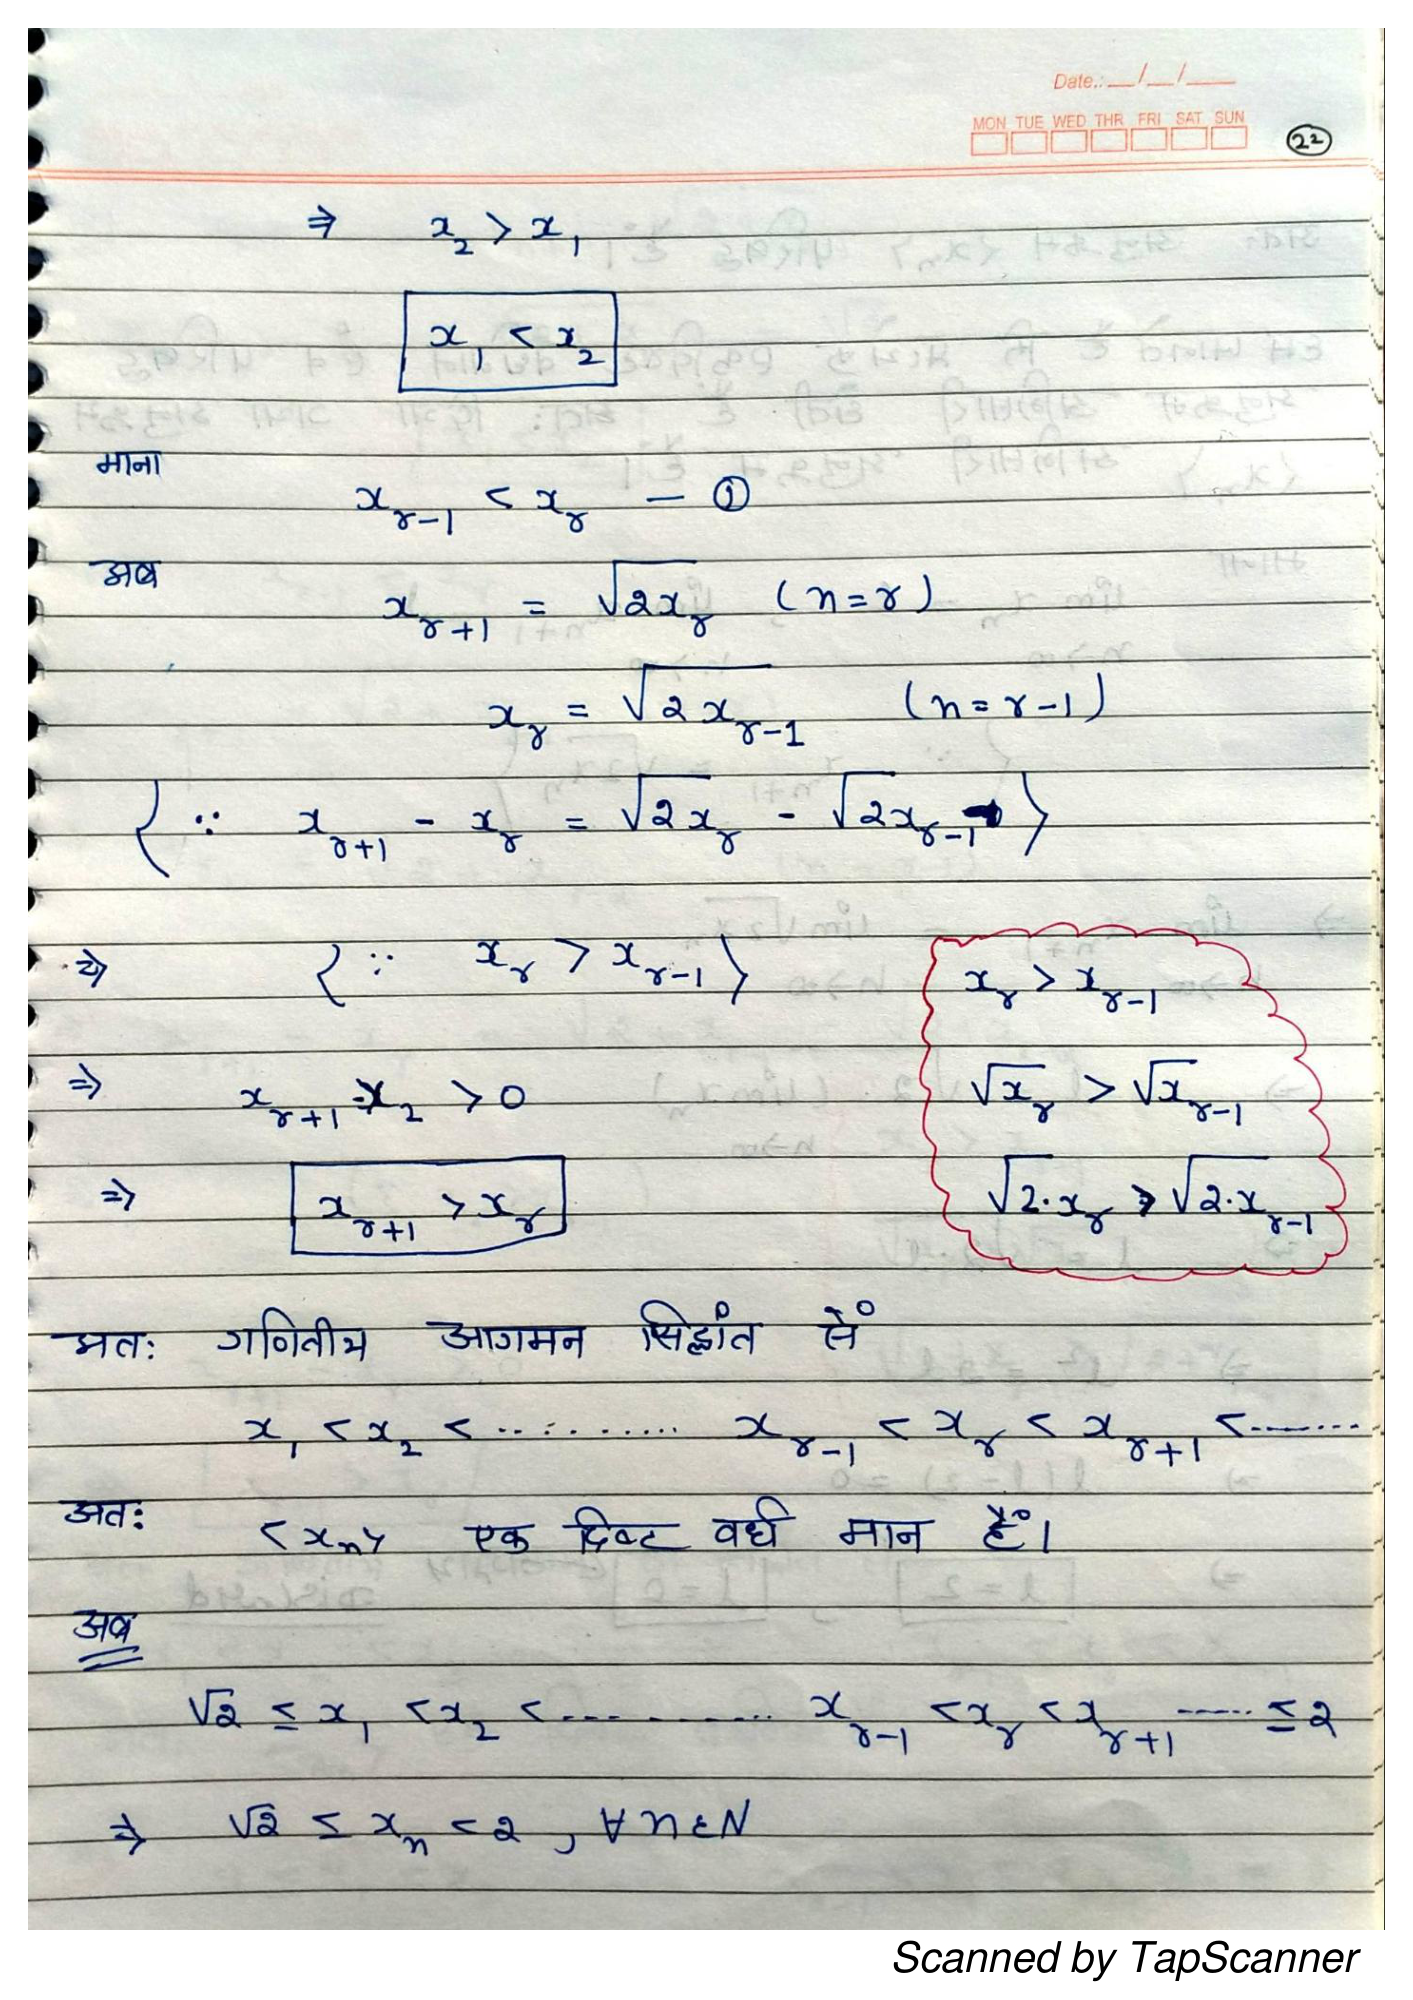 Date.: __/__/___
MON TUE WED THR FRI SAT SUN
22
⇒ x₂ > x₁
x₁ < x₂
माना
x_{r-1} < x_r — ①
अब
x_{r+1} = √2x_r (n=r)
x_r = √2x_{r-1} (n=r-1)
{∵ x_{r+1} - x_r = √2x_r - √2x_{r-1}}
⇒ {∵ x_r > x_{r-1}}
x_r > x_{r-1}
⇒ x_{r+1} - x_2 > 0
√x_r > √x_{r-1}
⇒ x_{r+1} > x_r
√2·x_r > √2·x_{r-1}
अतः गणितीय आगमन सिद्धांत से
x₁ < x₂ < .......... x_{r-1} < x_r < x_{r+1} < .......
अतः <x_n> एक दिष्ट वर्ध मान है।
अब
√2 ≤ x₁ < x₂ < .......... x_{r-1} < x_r < x_{r+1} ...... ≤ 2
⇒ √2 ≤ x_n < 2, ∀ n ε N
Scanned by TapScanner